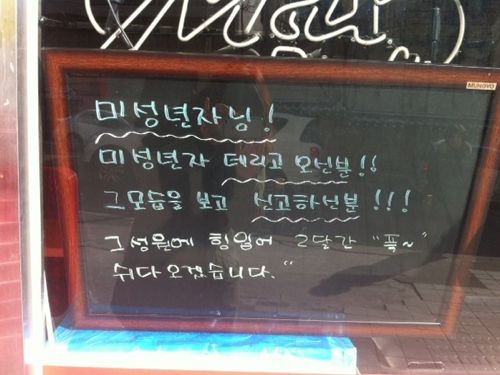 MUNGYO
미성년자님!
미성년자 데리고 오신분!!
그모습을 보고 신고하신분!!!
그성원에 힘입어 2달간 "푹~"
쉬다오겠습니다."